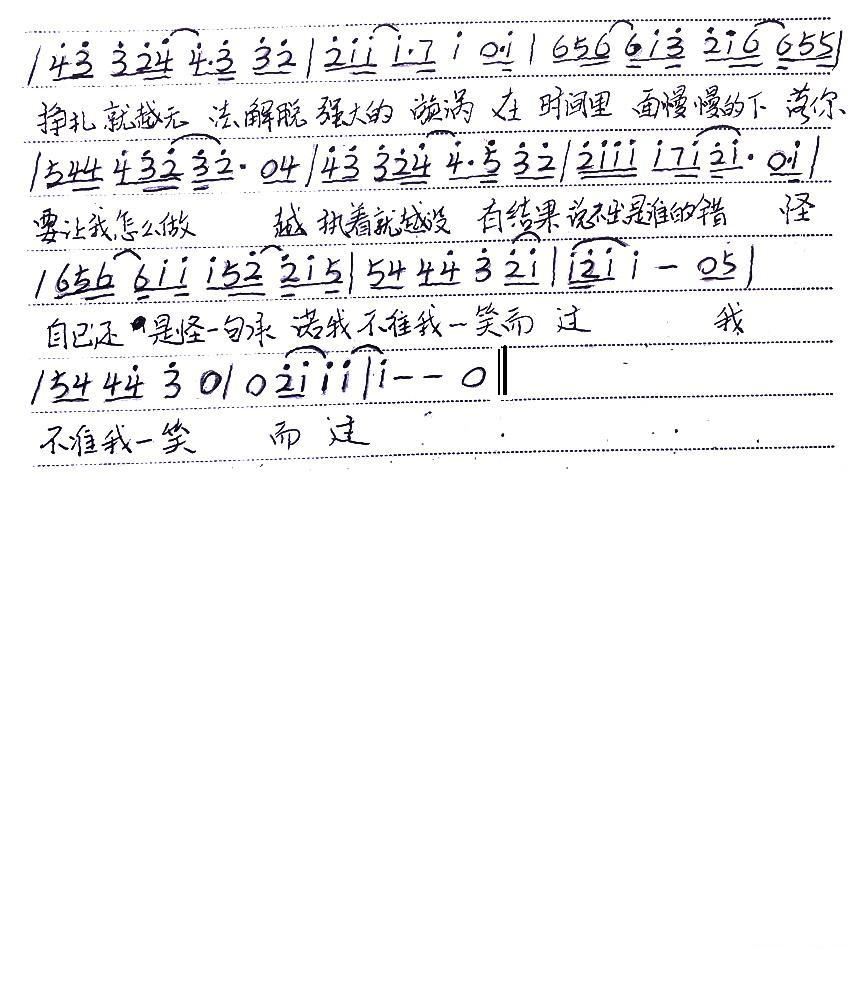 | 4̇3̇ 3̇2̇4̇ 4̇·3̇ 3̇2̇ | 2̇1̇1̇ 1̇·7 1̇ 0·1̇ | 656 61̇3̇ 2̇1̇6 655 |
挣扎就越无 法解脱 强大的 漩涡 在 时间里 面慢慢的下 落你
| 544 4̇3̇2̇ 3̇2̇· 04 | 4̇3̇ 3̇2̇4̇ 4̇·5̇ 3̇2̇ | 2̇1̇1̇1̇ 1̇71̇ 2̇1̇· 0·1̇ |
要让我怎么做 越 执着就越没 有结果 说不出是谁的错 怪
| 656 61̇1̇ 1̇52̇ 2̇1̇5 | 54 44̇ 3̇ 2̇1̇ | 1̇2̇1̇ 1̇ — 05 |
自己还 是怪一句承 诺我 不准我一笑而 过 我
| 54 44̇ 3̇ 0 | 0 2̇1̇ 1̇ 1̇ | 1̇ — — 0 ‖
不准我一笑 而 过